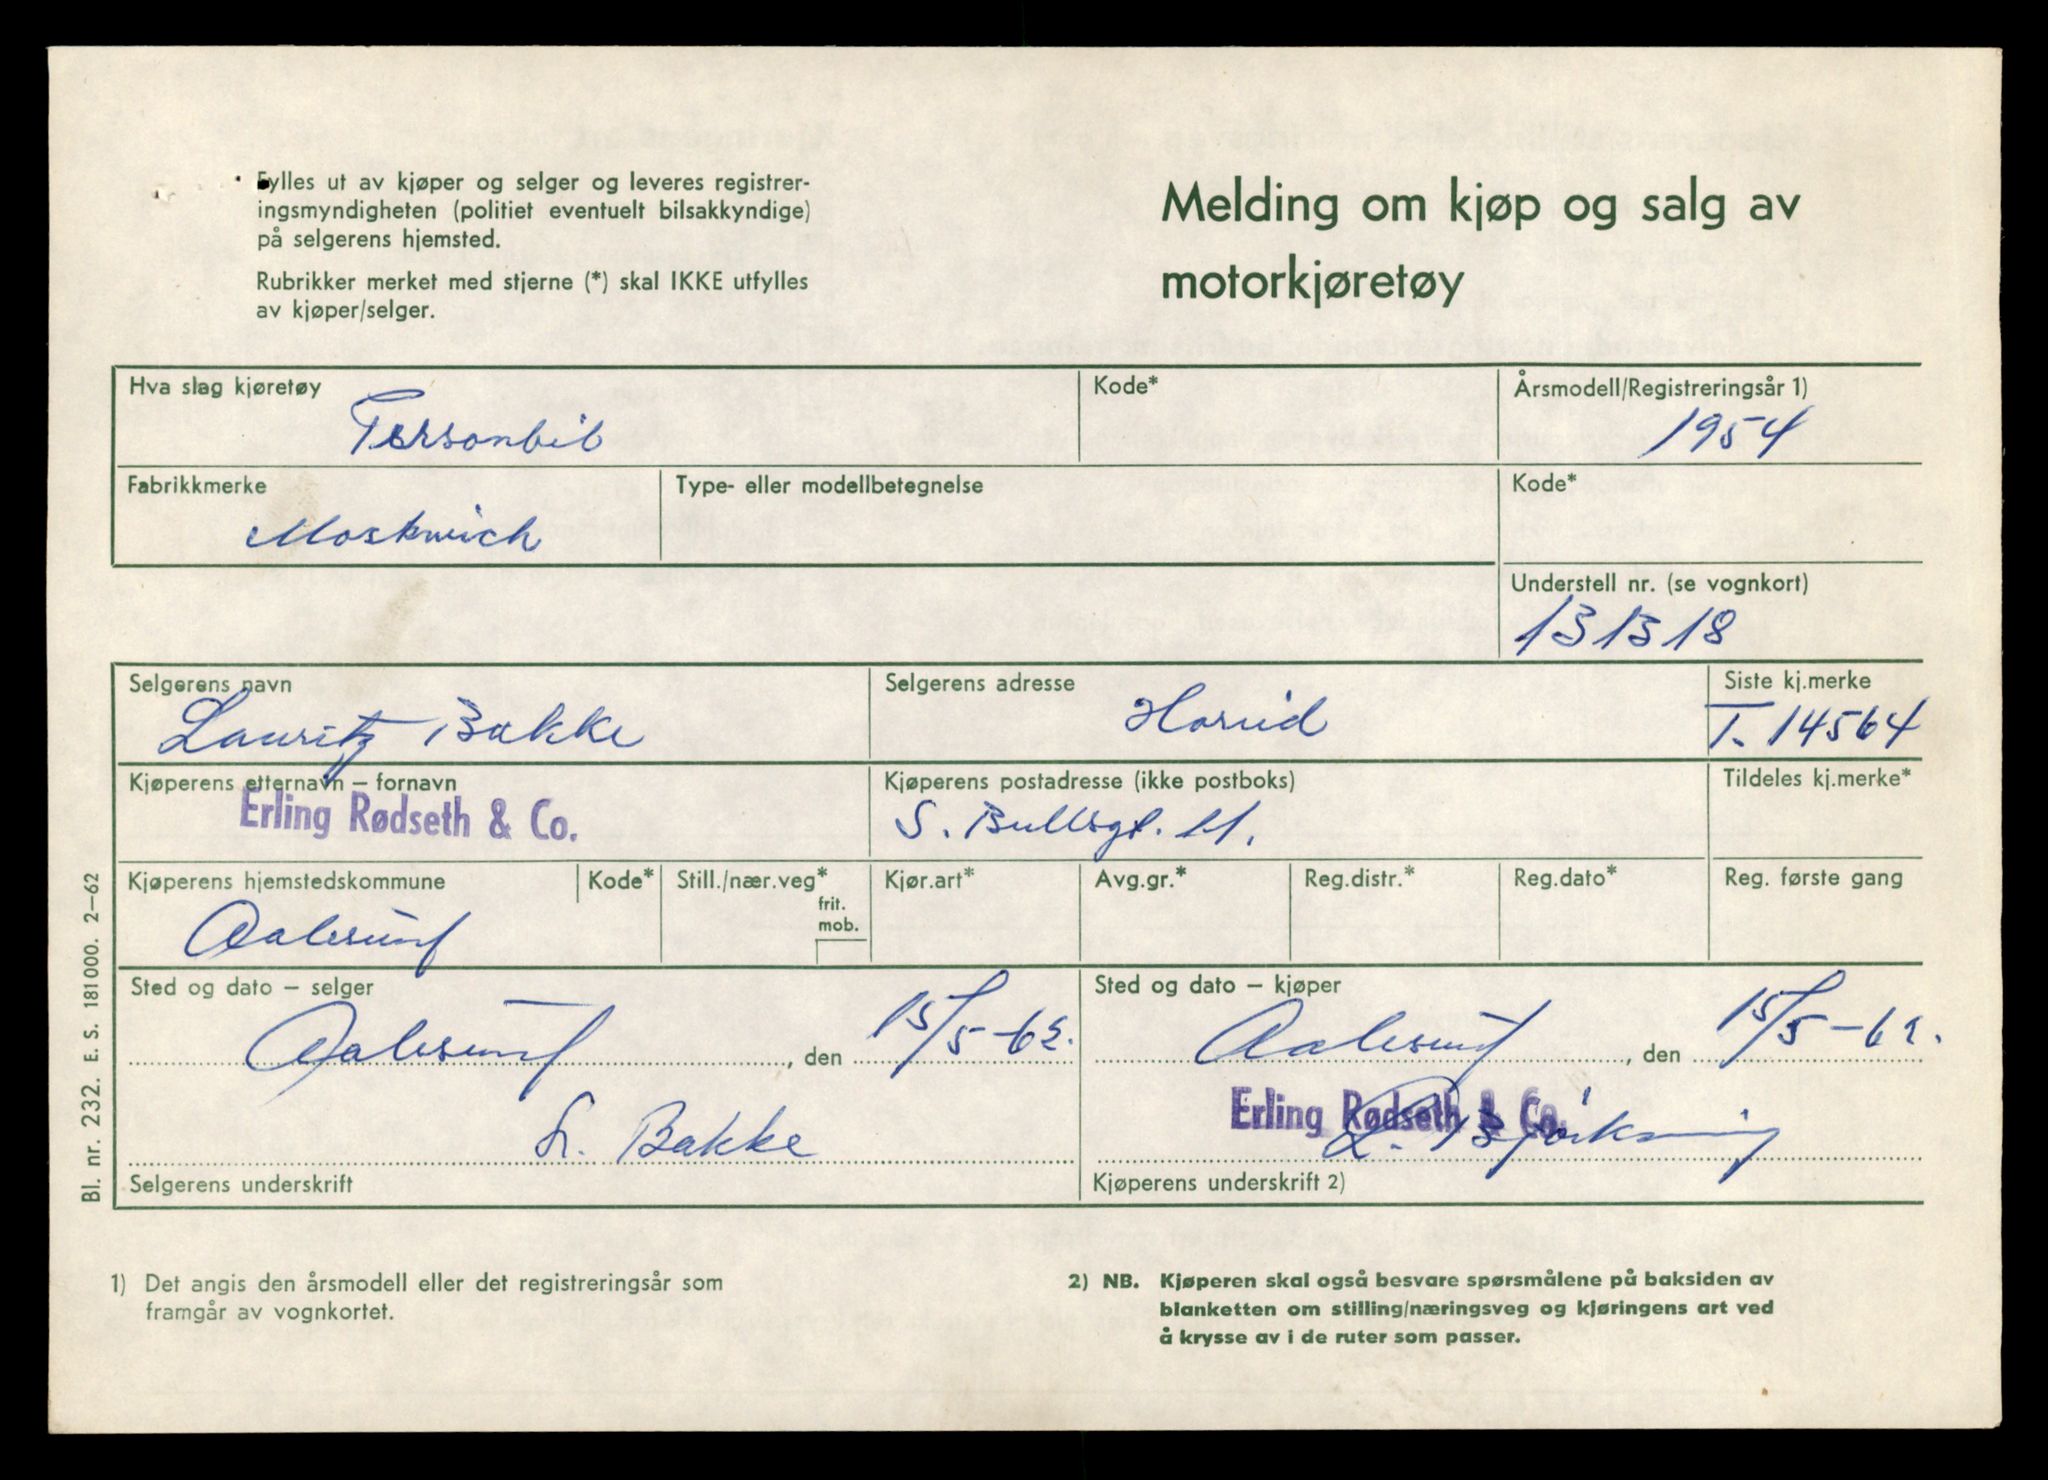 Fylles ut av kjøper og selger og leveres registrer-
ingsmyndigheten (politiet eventuelt bilsakkyndige)
på selgerens hjemsted.
Rubrikker merket med stjerne (*) skal IKKE utfylles
av kjøper/selger.
Melding om kjøp og salg av
motorkjøretøy
Hva slag kjøretøy
Personbil
Kode*
Årsmodell/Registreringsår 1)
1954
Fabrikkmerke
Moskwich
Type- eller modellbetegnelse
Kode*
Understell nr. (se vognkort)
131318
Selgerens navn
Lauritz Bakke
Selgerens adresse
Siste kj.merke
T. 14564
Kjøperens etternavn – fornavn
Erling Rødseth & Co.
Kjøperens postadresse (ikke postboks)
S. Bullsgt.
Tildeles kj.merke*
Kjøperens hjemstedskommune
Aalesund
Kode*
Still./nær.veg*
frit.
mob.
Kjør.art*
Avg.gr.*
Reg.distr.*
Reg.dato*
Reg. første gang
Sted og dato – selger
Aalesund, den 15/5-62.
L. Bakke
Selgerens underskrift
Sted og dato – kjøper
Aalesund, den 15/5-62.
Erling Rødseth & Co.
Kjøperens underskrift 2)
Bl. nr. 232. E. S. 181000. 2–62
1) Det angis den årsmodell eller det registreringsår som
framgår av vognkortet.
2) NB. Kjøperen skal også besvare spørsmålene på baksiden av
blanketten om stilling/næringsveg og kjøringens art ved
å krysse av i de ruter som passer.